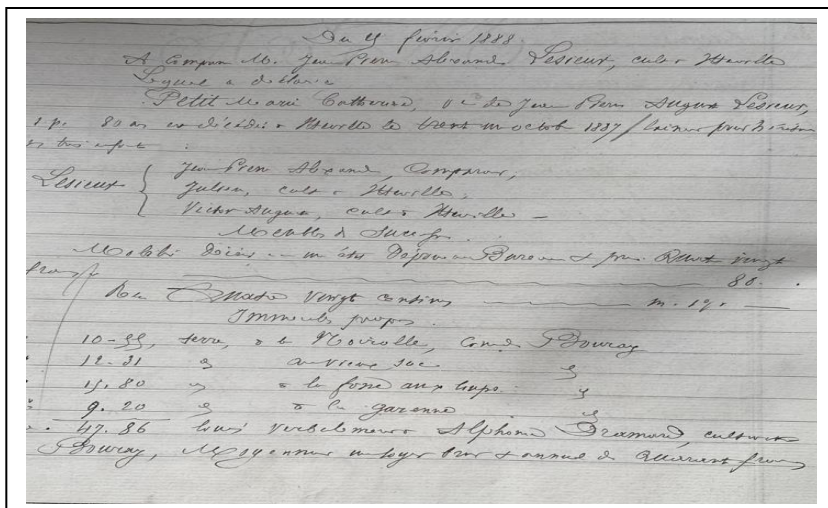 Du 25 février 1888
A Comparu M. Jean Pierre Alexandre Lesieux, cultr à Itteville
Lequel a déclaré
Petit Marie Catherine, Ve de Jean Pierre Auguste Lesieux,
s. p. 80 ans est décédée à Itteville le trent un octob 1887 laissant pour héritiers
ses trois enfants :
Lesieux { Jean Pierre Alexandre, Comparant,
Julien, cult à Itteville,
Victor Auguste, cult à Itteville —
Meubles de Succ
Mobilier en un état déposé au Bureau & prisé Quatre vingt
francs 80.
Quatre vingt centimes m. 1
Immeubles propres.
10-55, terre, à la Noirolle, Cne de Bouray
12.31 d° au vieux d°
15.80 d° à la fosse aux loups d°
9.20 d° à la garenne d°
47.86 loués verbalement à Alphonse Gramard, cultivateur
Bouray, Moyennant un loyer brut & annuel de Quarante francs